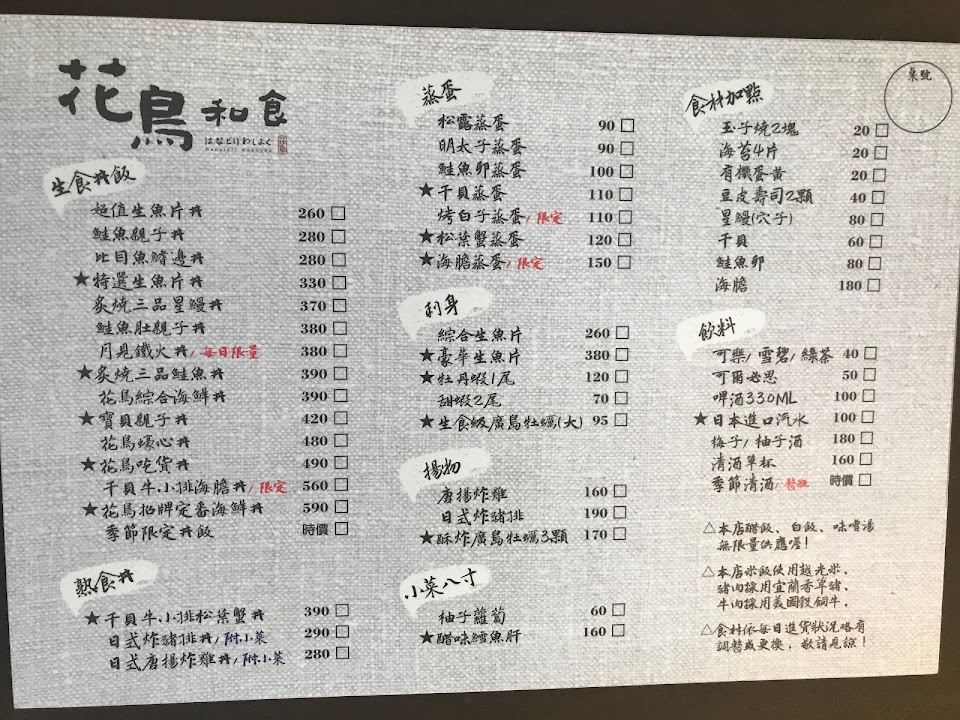 花鳥和食
はなとりわしょく
生食丼飯
超值生魚片丼 260 □
鮭魚親子丼 280 □
比目魚鰭邊丼 280 □
★特選生魚片丼 330 □
炙燒三品星鰻丼 370 □
鮭魚肚親子丼 380 □
月見鐵火丼/每日限量 380 □
★炙燒三品鮭魚丼 390 □
花鳥綜合海鮮丼 390 □
★寶貝親子丼 420 □
花鳥壕心丼 480 □
★花鳥吃貨丼 490 □
干貝牛小排海膽丼/限定 560 □
★花鳥招牌定番海鮮丼 590 □
季節限定丼飯 時價 □
熟食丼
★干貝牛小排松葉蟹丼 390 □
日式炸豬排丼/附小菜 290 □
日式唐揚炸雞丼/附小菜 280 □
蒸蛋
松露蒸蛋 90 □
明太子蒸蛋 90 □
鮭魚卵蒸蛋 100 □
★干貝蒸蛋 110 □
烤白子蒸蛋/限定 110 □
★松葉蟹蒸蛋 120 □
★海膽蒸蛋/限定 150 □
刺身
綜合生魚片 260 □
★豪華生魚片 380 □
★牡丹蝦1尾 120 □
甜蝦2尾 70 □
★生食級廣島牡蠣(大) 95 □
揚物
唐揚炸雞 160 □
日式炸豬排 190 □
★酥炸廣島牡蠣3顆 170 □
小菜八寸
柚子蘿蔔 60 □
★醋味鱈魚肝 160 □
桌號
食材加點
玉子燒2塊 20 □
海苔4片 20 □
有機蛋黃 20 □
豆皮壽司2顆 40 □
星鰻(穴子) 80 □
干貝 60 □
鮭魚卵 80 □
海膽 180 □
飲料
可樂/雪碧/綠茶 40 □
可爾必思 50 □
啤酒330ML 100 □
★日本進口汽水 100 □
梅子/柚子酒 180 □
清酒單杯 160 □
季節清酒/整瓶 時價 □
△本店醋飯、白飯、味噌湯
無限量供應喔！
△本店米飯使用越光米、
豬肉採用宜蘭香草豬、
牛肉採用美國穀飼牛。
△食材依每日進貨狀況略有
調整或更換，敬請見諒！